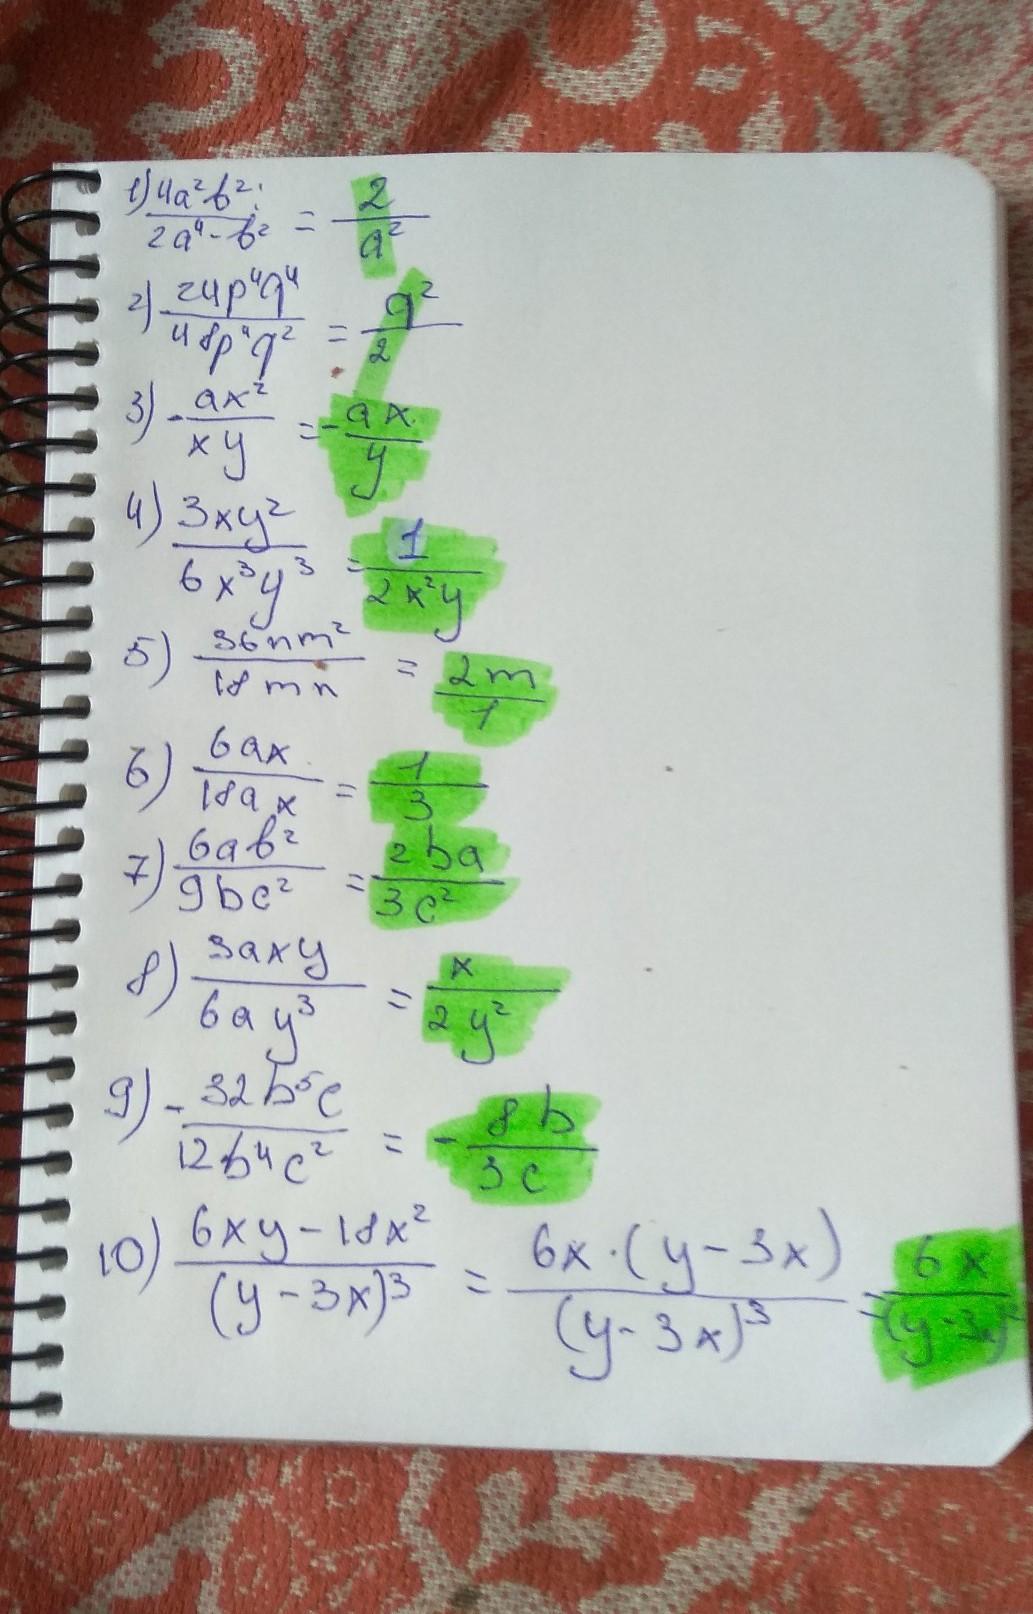 1) 4a²b²: / 2a⁴-b² = 2 / a²
2) 24p⁴q⁴ / 48p⁴q² = q² / 2
3) - ax² / xy = - ax / y
4) 3xy² / 6x³y³ = 1 / 2x²y
5) 36nm² / 18mn = 2m / 1
6) 6ax / 18ax = 1 / 3
7) 6ab² / 9bc² = 2ba / 3c²
8) 3axy / 6ay³ = x / 2y²
9) - 32b⁵c / 12b⁴c² = - 8b / 3c
10) 6xy-18x² / (y-3x)³ = 6x·(y-3x) / (y-3x)³ = 6x / (y-3x)²